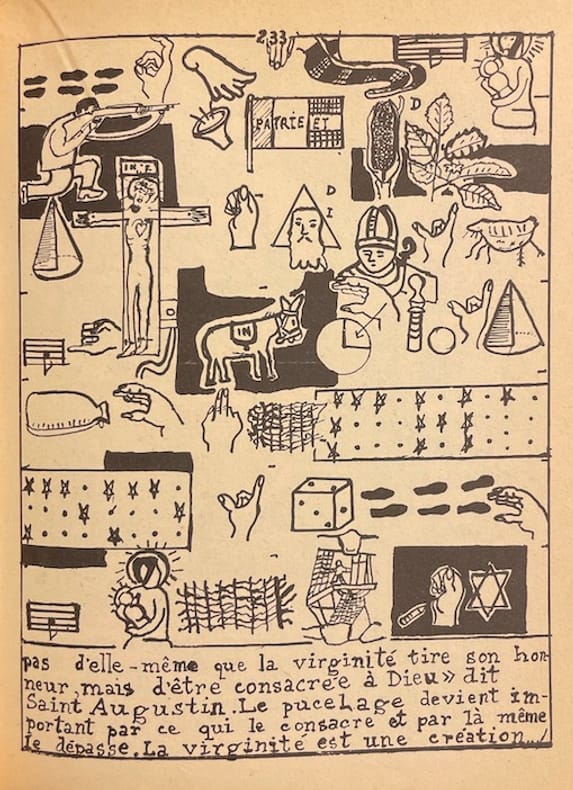 233
PATRIE ET
D
D
I
IN
pas d'elle-même que la virginité tire son hon-
neur, mais d'être consacrée à Dieu» dit
Saint Augustin. Le pucelage devient im-
portant par ce qui le consacre et par là même
le dépasse. La virginité est une création.../